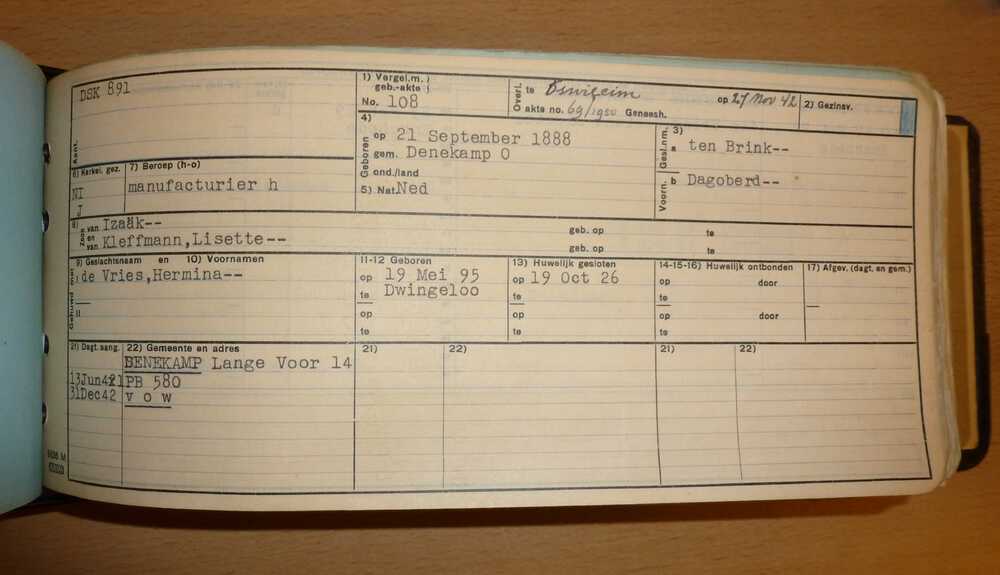 DSK 891
Kant.
1) Vergel.m. }
geb.-akte }
No. 108
Overl. te Oswiecim op 27 Nov 42
akte no. 69/1950 Geneesh.
2) Gezinsv.
6) Kerkel. gez.
NI
J
7) Beroep (h-o)
manufacturier h
4)
Geboren
op 21 September 1888
gem. Denekamp O
ond./land
5) Nat. Ned
3)
Gesl.nm. a ten Brink--
Voorn. b Dagoberd--
8)
Zoon van Izaäk-- geb. op te
en
van Kleffmann,Lisette-- geb. op te
9) Geslachtsnaam en 10) Voornamen
Gehuwd met
I de Vries,Hermina--
II
11-12 Geboren
op 19 Mei 95
te Dwingeloo
op
te
13) Huwelijk gesloten
op 19 Oct 26
te
op
te
14-15-16) Huwelijk ontbonden
op door
te
op door
te
17) Afgev. (dagt. en gem.)
21) Dagt. aang. 22) Gemeente en adres 21) 22) 21) 22)
BENEKAMP Lange Voor 14
13Jun421 PB 580
31Dec42 v o w